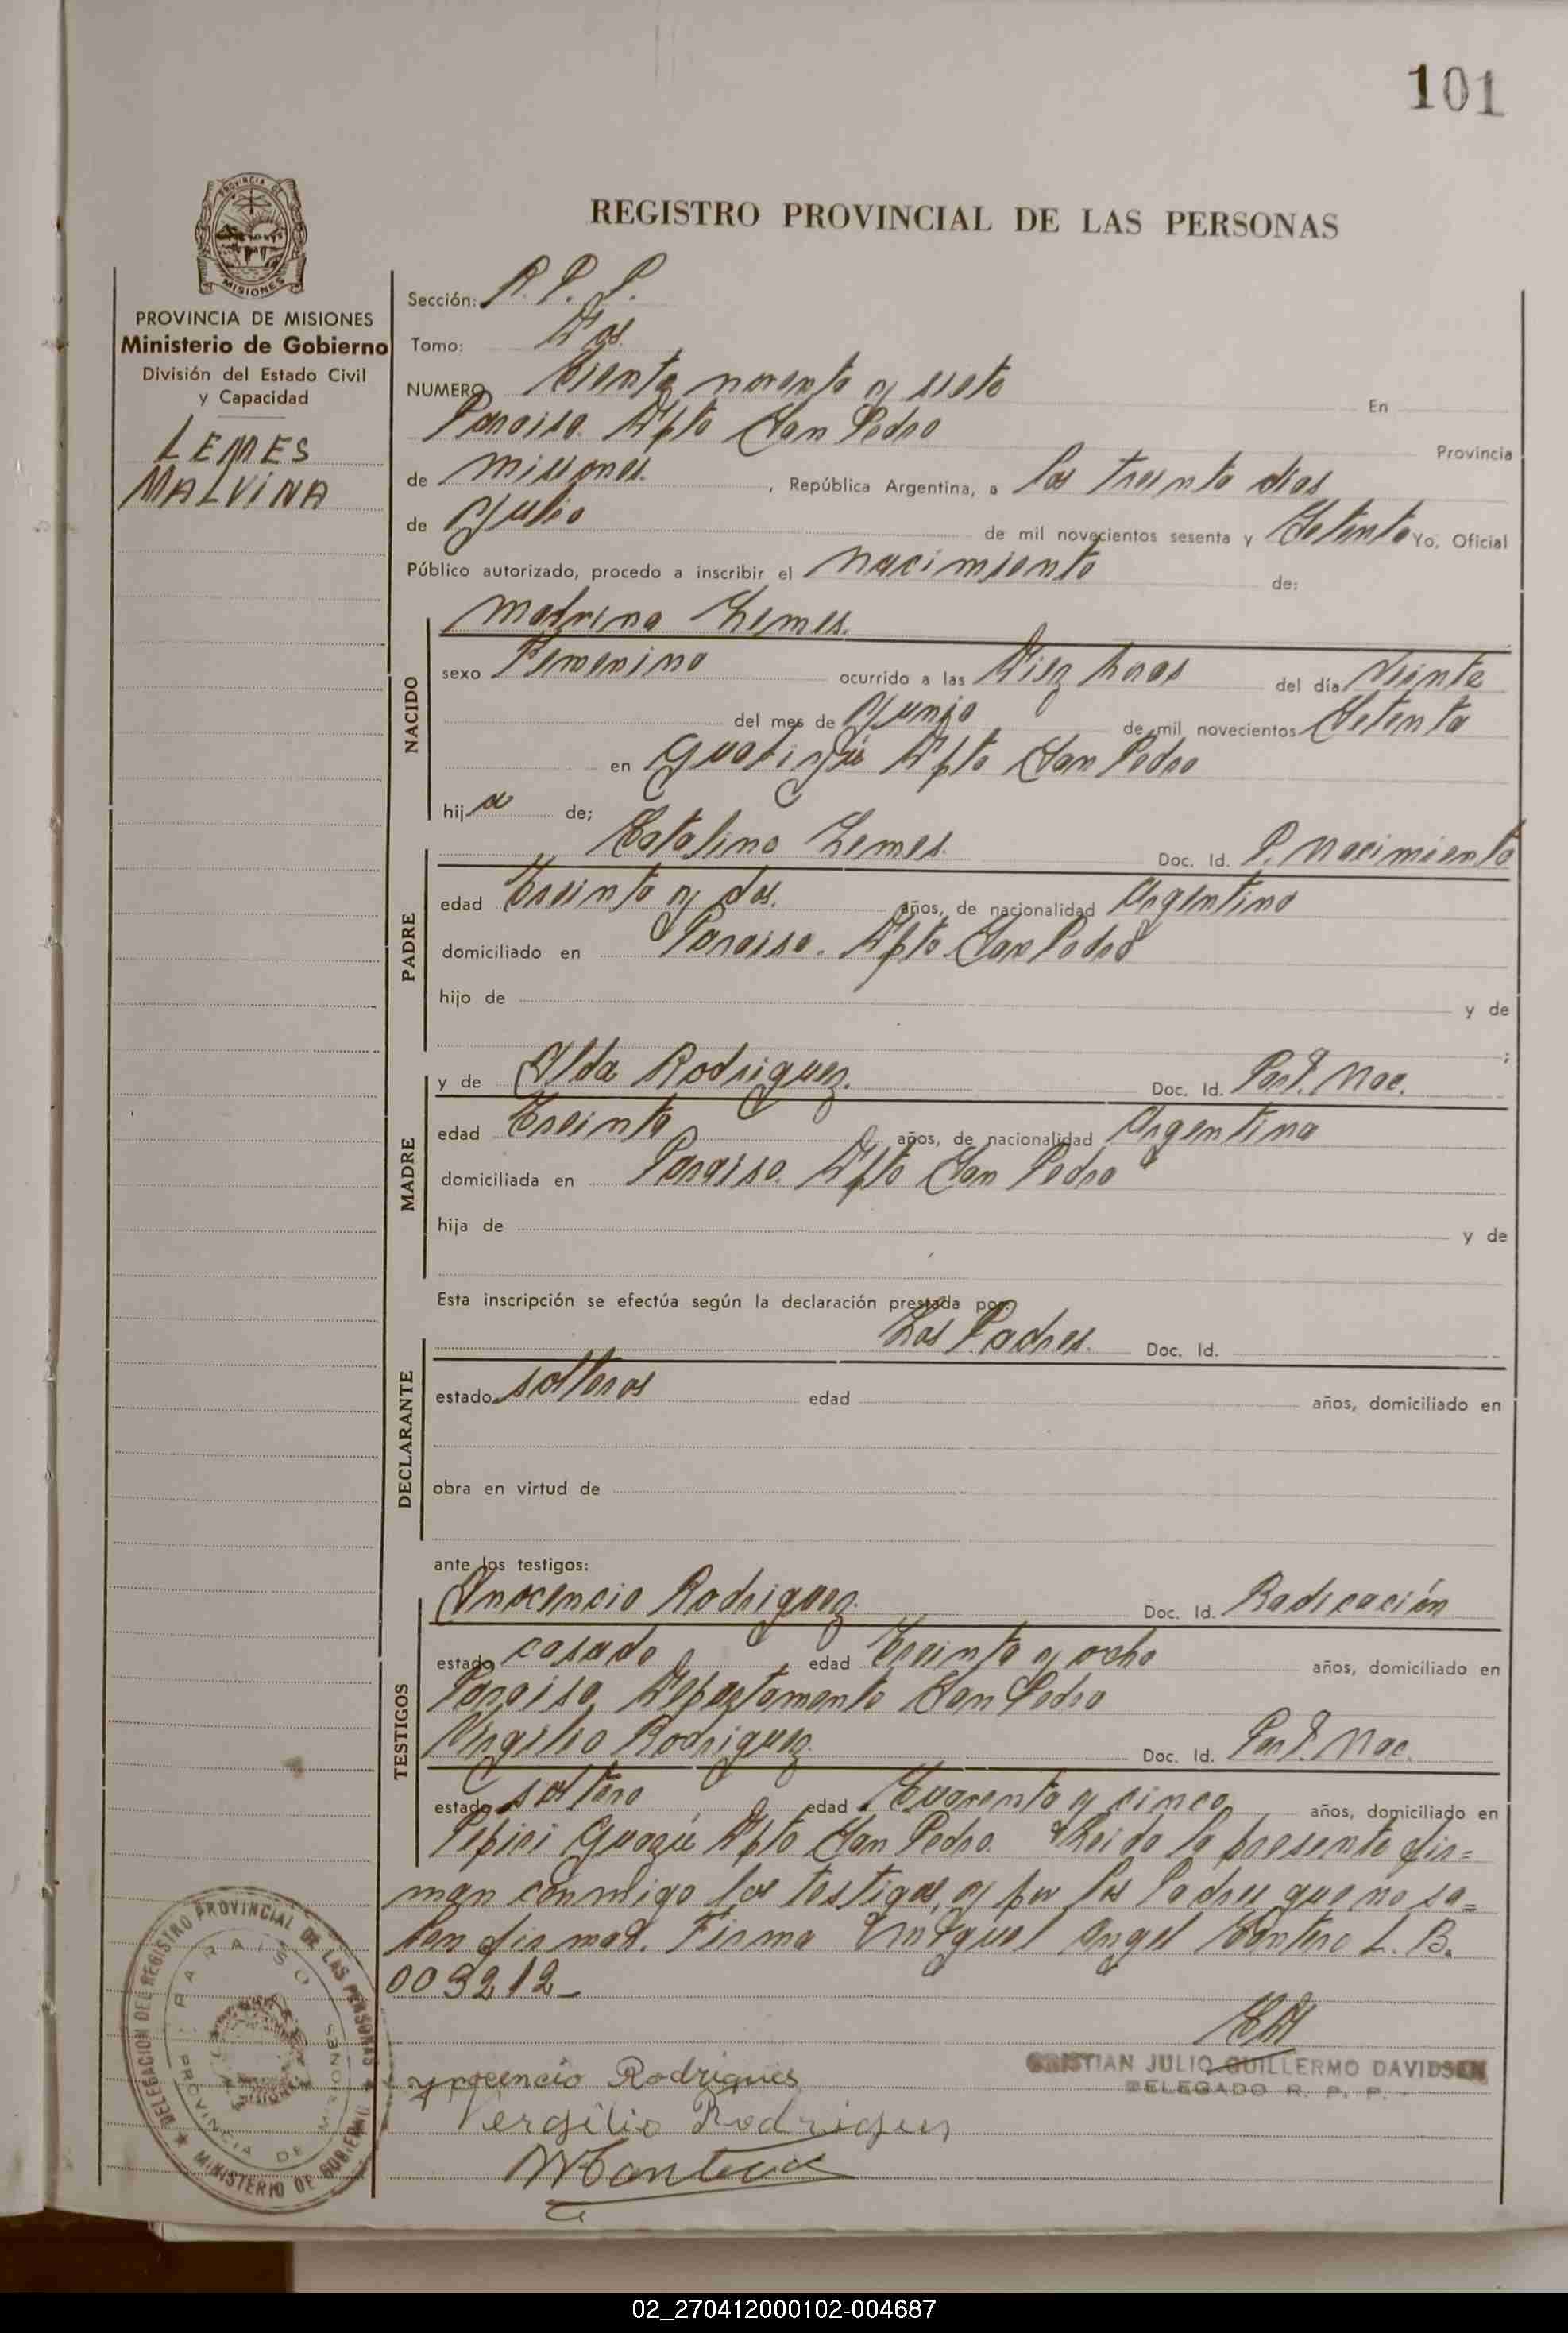 101
PROVINCIA DE MISIONES
REGISTRO PROVINCIAL DE LAS PERSONAS
PROVINCIA DE MISIONES
Ministerio de Gobierno
División del Estado Civil
y Capacidad
LEMES
MALVINA
Sección: R. P. P.
Tomo: Dos.
NUMERO Ciento noventa y siete En
Paraiso. Dpto San Pedro Provincia
de Misiones. , República Argentina, a los treinta dias
de Julio de mil novecientos sesenta y Setenta Yo, Oficial
Público autorizado, procedo a inscribir el nacimiento de:
NACIDO
Malvina Lemes.
sexo Femenino ocurrido a las Diez horas del día Veinte
del mes de Junio de mil novecientos Setenta
en Dpto San Pedro
hija de;
PADRE
Catalino Lemes. Doc. Id. P. Nacimiento
edad Treinta y dos. años, de nacionalidad Argentino
domiciliado en Paraiso. Dpto San Pedro
hijo de y de
;
MADRE
y de Alda Rodriguez. Doc. Id. Part. Nac.
edad Treinta años, de nacionalidad Argentina
domiciliada en Paraiso. Dpto San Pedro
hija de y de
Esta inscripción se efectúa según la declaración prestada por:
DECLARANTE
Los Padres. Doc. Id.
estado solteros edad años, domiciliado en
obra en virtud de
ante los testigos:
TESTIGOS
Inocencio Rodriguez. Doc. Id. Radicación
estado casado edad Treinta y ocho años, domiciliado en
Paraiso, Departamento San Pedro
Virgilio Rodriguez. Doc. Id. Part. Nac.
estado soltero edad Cuarenta y cinco años, domiciliado en
Pepiri Guazú Dpto San Pedro. Leida la presente fir=
man conmigo los testigos, y por los Padres que no sa=
ben firmar. Firma Miguel Angel L. B.
009212_
CRISTIAN JULIO GUILLERMO DAVIDSEN
DELEGADO R. P. P.
Ynocencio Rodrigues
Vergilio Rodrigues
DELEGACION DEL REGISTRO PROVINCIAL DE LAS PERSONAS
MINISTERIO DE GOBIERNO
PARAISO
PROVINCIA DE MISIONES
02_270412000102-004687